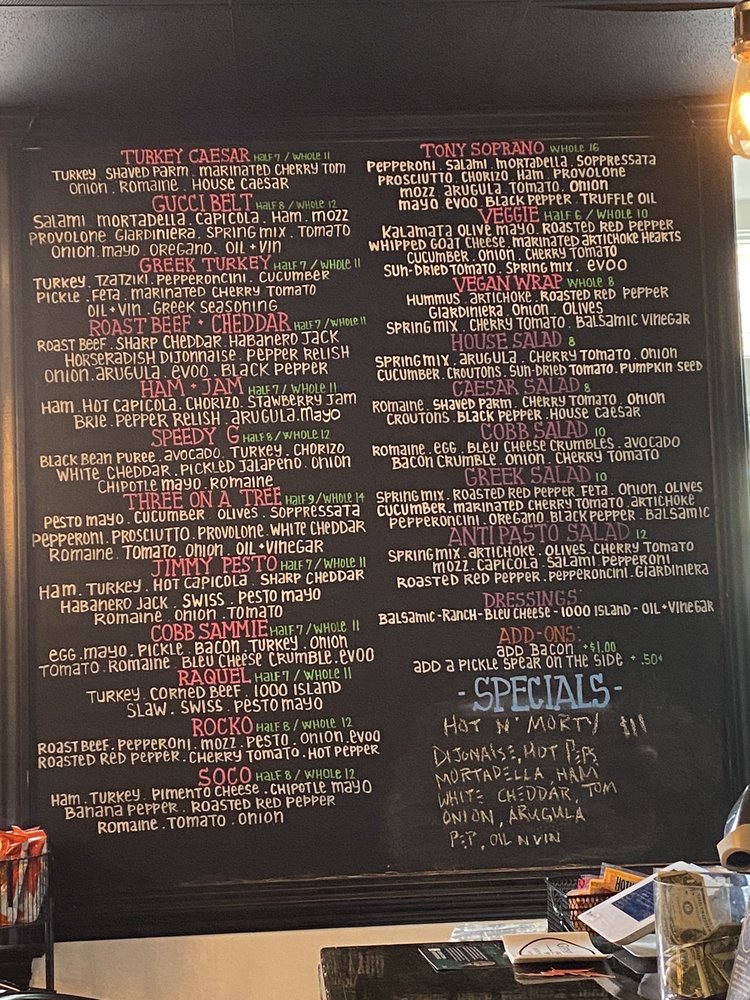 TURKEY CAESAR HALF 7 / WHOLE 11
TURKEY . SHAVED PARM . MARINATED CHERRY TOM
ONION . ROMAINE . HOUSE CAESAR
GUCCI BELT HALF 8 / WHOLE 12
SALAMI . MORTADELLA . CAPICOLA . HAM . MOZZ
PROVOLONE . GIARDINIERA . SPRING MIX . TOMATO
ONION . MAYO . OREGANO . OIL + VIN
GREEK TURKEY HALF 7 / WHOLE 11
TURKEY . TZATZIKI . PEPPERONCINI . CUCUMBER
PICKLE . FETA . MARINATED CHERRY TOMATO
OIL + VIN . GREEK SEASONING
ROAST BEEF + CHEDDAR HALF 7 / WHOLE 11
ROAST BEEF . SHARP CHEDDAR . HABANERO JACK
HORSERADISH DIJONNAISE . PEPPER RELISH
ONION . ARUGULA . EVOO . BLACK PEPPER
HAM + JAM HALF 7 / WHOLE 11
HAM . HOT CAPICOLA . CHORIZO . STAWBERRY JAM
BRIE . PEPPER RELISH . ARUGULA . MAYO
SPEEDY G HALF 8 / WHOLE 12
BLACK BEAN PUREE . AVOCADO . TURKEY . CHORIZO
WHITE CHEDDAR . PICKLED JALAPENO . ONION
CHIPOTLE MAYO . ROMAINE
THREE ON A TREE HALF 9 / WHOLE 14
PESTO MAYO . CUCUMBER . OLIVES . SOPPRESSATA
PEPPERONI . PROSCIUTTO . PROVOLONE . WHITE CHEDDAR
ROMAINE . TOMATO . ONION . OIL + VINEGAR
JIMMY PESTO HALF 7 / WHOLE 11
HAM . TURKEY . HOT CAPICOLA . SHARP CHEDDAR
HABANERO JACK . SWISS . PESTO MAYO
ROMAINE . ONION . TOMATO
COBB SAMMIE HALF 7 / WHOLE 11
EGG . MAYO . PICKLE . BACON . TURKEY . ONION
TOMATO . ROMAINE . BLEU CHEESE CRUMBLE . EVOO
RAQUEL HALF 7 / WHOLE 11
TURKEY . CORNED BEEF . 1000 ISLAND
SLAW . SWISS . PESTO MAYO
ROCKO HALF 8 / WHOLE 12
ROAST BEEF . PEPPERONI . MOZZ . PESTO . ONION . EVOO
ROASTED RED PEPPER . CHERRY TOMATO . HOT PEPPER
SOCO HALF 8 / WHOLE 12
HAM . TURKEY . PIMENTO CHEESE . CHIPOTLE MAYO
BANANA PEPPER . ROASTED RED PEPPER
ROMAINE . TOMATO . ONION
TONY SOPRANO WHOLE 16
PEPPERONI . SALAMI . MORTADELLA . SOPPRESSATA
PROSCIUTTO . CHORIZO . HAM . PROVOLONE
MOZZ . ARUGULA . TOMATO . ONION
MAYO . EVOO . BLACK PEPPER . TRUFFLE OIL
VEGGIE HALF 6 / WHOLE 10
KALAMATA OLIVE MAYO . ROASTED RED PEPPER
WHIPPED GOAT CHEESE . MARINATED ARTICHOKE HEARTS
CUCUMBER . ONION . CHERRY TOMATO
SUN-DRIED TOMATO . SPRING MIX . EVOO
VEGAN WRAP WHOLE 8
HUMMUS . ARTICHOKE . ROASTED RED PEPPER
GIARDINIERA . ONION . OLIVES
SPRING MIX . CHERRY TOMATO . BALSAMIC VINEGAR
HOUSE SALAD 8
SPRING MIX . ARUGULA . CHERRY TOMATO . ONION
CUCUMBER . CROUTONS . SUN-DRIED TOMATO . PUMPKIN SEED
CAESAR SALAD 8
ROMAINE . SHAVED PARM . CHERRY TOMATO . ONION
CROUTONS . BLACK PEPPER . HOUSE CAESAR
COBB SALAD 10
ROMAINE . EGG . BLEU CHEESE CRUMBLES . AVOCADO
BACON CRUMBLE . ONION . CHERRY TOMATO
GREEK SALAD 10
SPRING MIX . ROASTED RED PEPPER . FETA . ONION . OLIVES
CUCUMBER . MARINATED CHERRY TOMATO . ARTICHOKE
PEPPERONCINI . OREGANO . BLACK PEPPER . BALSAMIC
ANTIPASTO SALAD 12
SPRING MIX . ARTICHOKE . OLIVES . CHERRY TOMATO
MOZZ . CAPICOLA . SALAMI . PEPPERONI
ROASTED RED PEPPER . PEPPERONCINI . GIARDINIERA
DRESSINGS:
BALSAMIC - RANCH - BLEU CHEESE - 1000 ISLAND - OIL + VINEGAR
ADD-ONS:
ADD BACON +$1.00
ADD A PICKLE SPEAR ON THE SIDE + .50¢
- SPECIALS -
HOT N' MORTY $11
DIJONAISE, HOT PEPS
MORTADELLA, HAM
WHITE CHEDDAR, TOM
ONION, ARUGULA
PEP, OIL N VIN